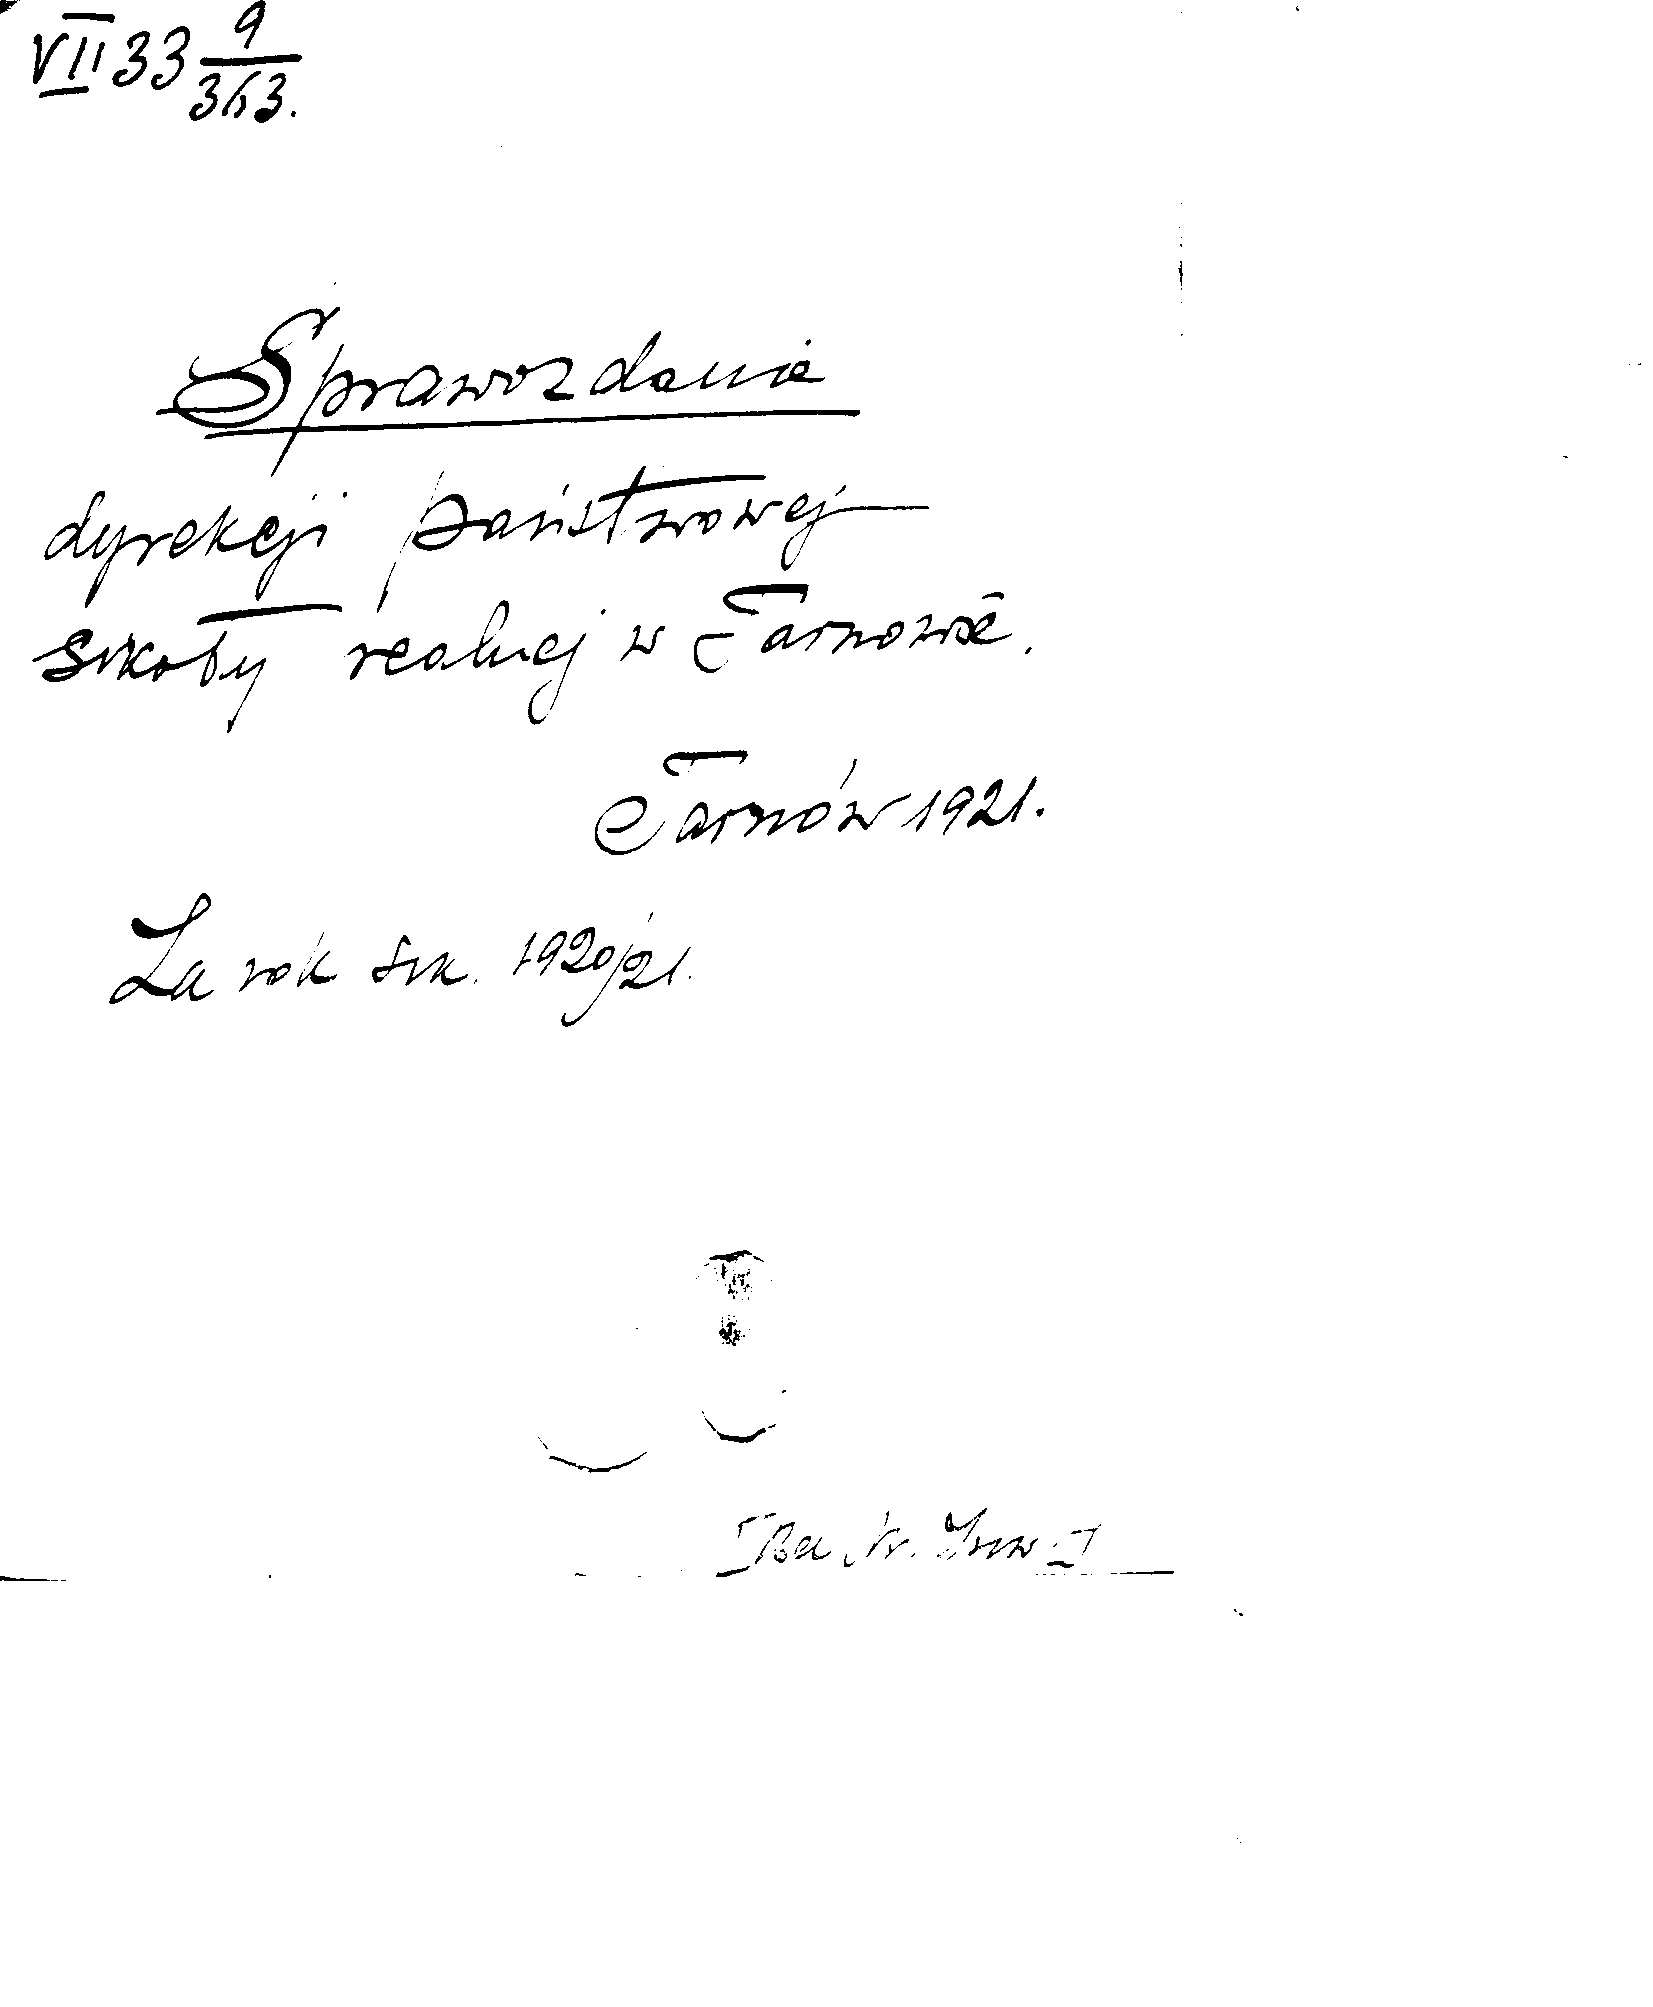 VII 33 9/363.
Sprawozdanie
dyrekcji państwowej
szkoły realnej w Tarnowie.
Tarnów 1921.
Za rok szk. 1920/21.